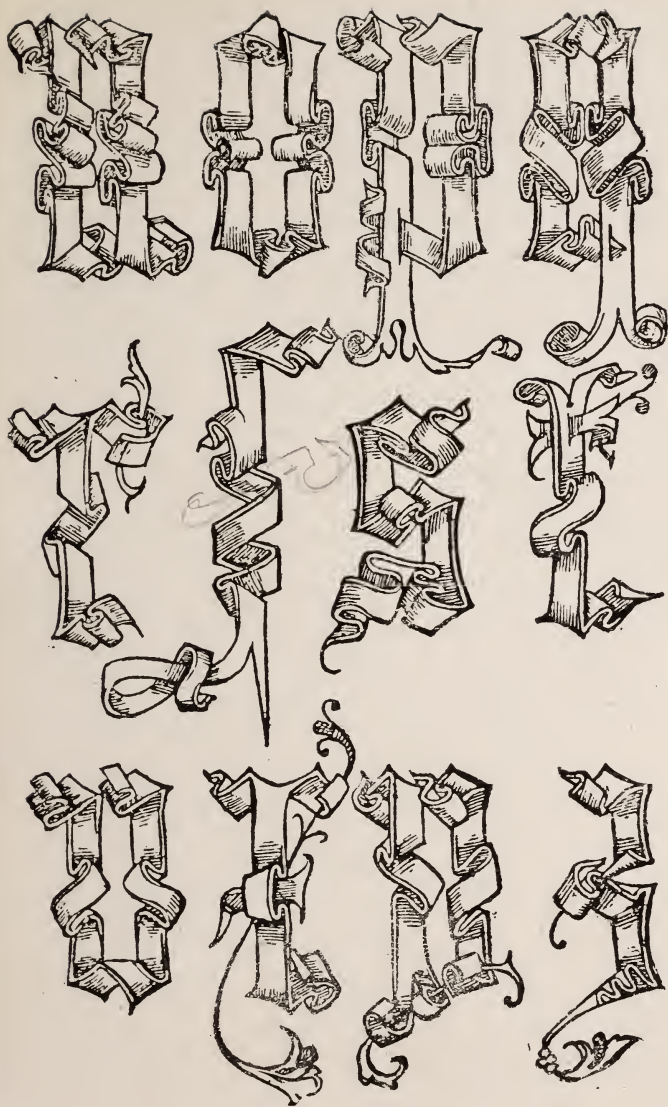 n o p q
r ſ s t
u x y z